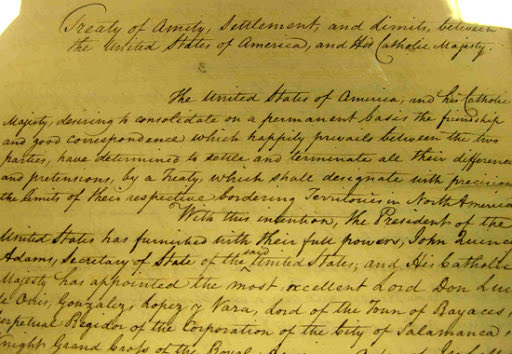 Treaty of Amity, Settlement, and Limits, between
the United States of America, and His Catholic Majesty.
The United States of America, and his Catholic
Majesty, desiring to consolidate on a permanent basis the friendship
and good correspondence which happily prevails between the two
parties, have determined to settle and terminate all their difference
and pretensions, by a Treaty, which shall designate with precision
the limits of their respective bordering Territories in North America
With this intention, the President of the
United States has furnished with their full powers, John Quincy
Adams, Secretary of State of the said United States; and His Catholic
Majesty has appointed the most excellent Lord Don Lui
de Onis, Gonzalez, Lopez y Vara, Lord of the Town of Rayaces,
Perpetual Regidor of the Corporation of the City of Salamanca,
Knight Grand Cross of the Royal